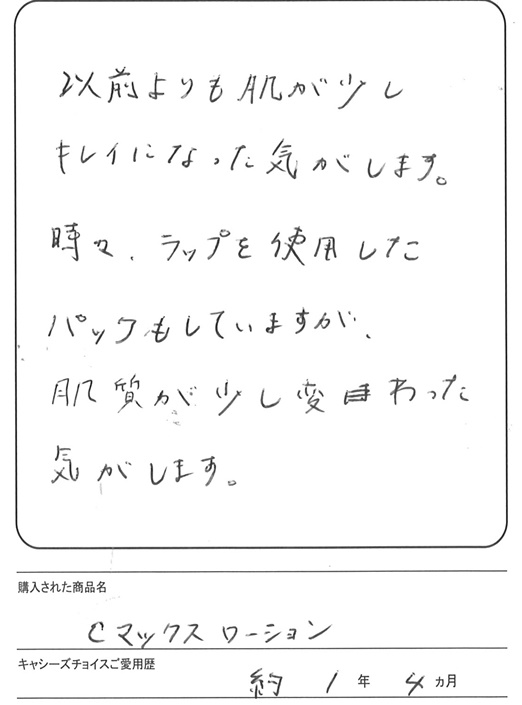 以前よりも肌が少し
キレイになった気がします。
時々、ラップを使用した
パックもしていますが、
肌質が少し変わった
気がします。
購入された商品名
Cマックスローション
キャシーズチョイスご愛用歴
約 1 年 4 ヵ月